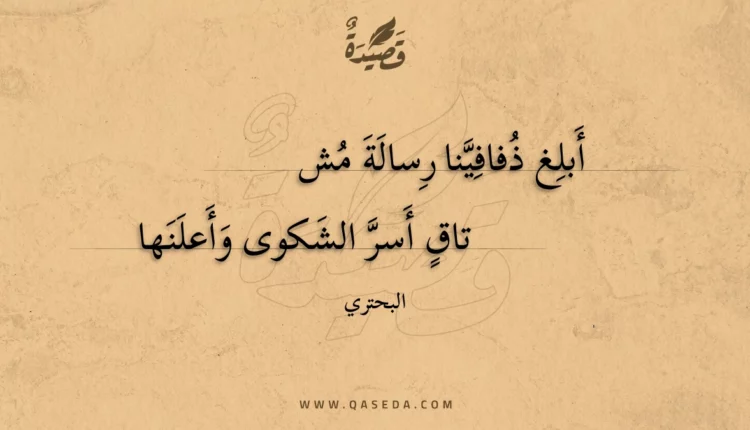 قَصِيْدَةٌ
أَبلِغ ذُفافِيَّنا رِسالَةَ مُش
تاقٍ أَسرَّ الشَكوى وَأَعلَنَها
البحتري
WWW.QASEDA.COM